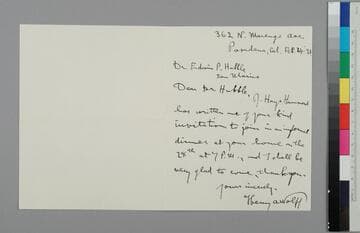 362 N. Marengo Ave
Pasadena, Cal.
Dr Edwin P. Hubble
San Marino
Dear Mr Hubble,
has written me of your kind
invitation to join in an informal
dinner at your home on the
28th at 7 P.M., and I shall be
very glad to come, thank you.
Yours sincerely,